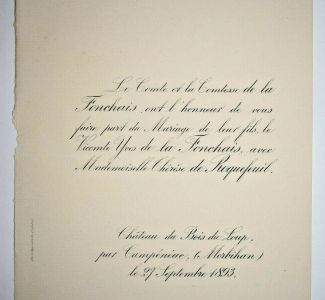 Le Comte et la Comtesse de la
Fonchais, ont l'honneur de vous
faire part du Mariage de leur fils, le
Vicomte Yves de la Fonchais, avec
Mademoiselle Chérise de Roquefeuil.
Château du Bois du Loup,
par Campénéac, (Morbihan)
le 27 Septembre 1893.